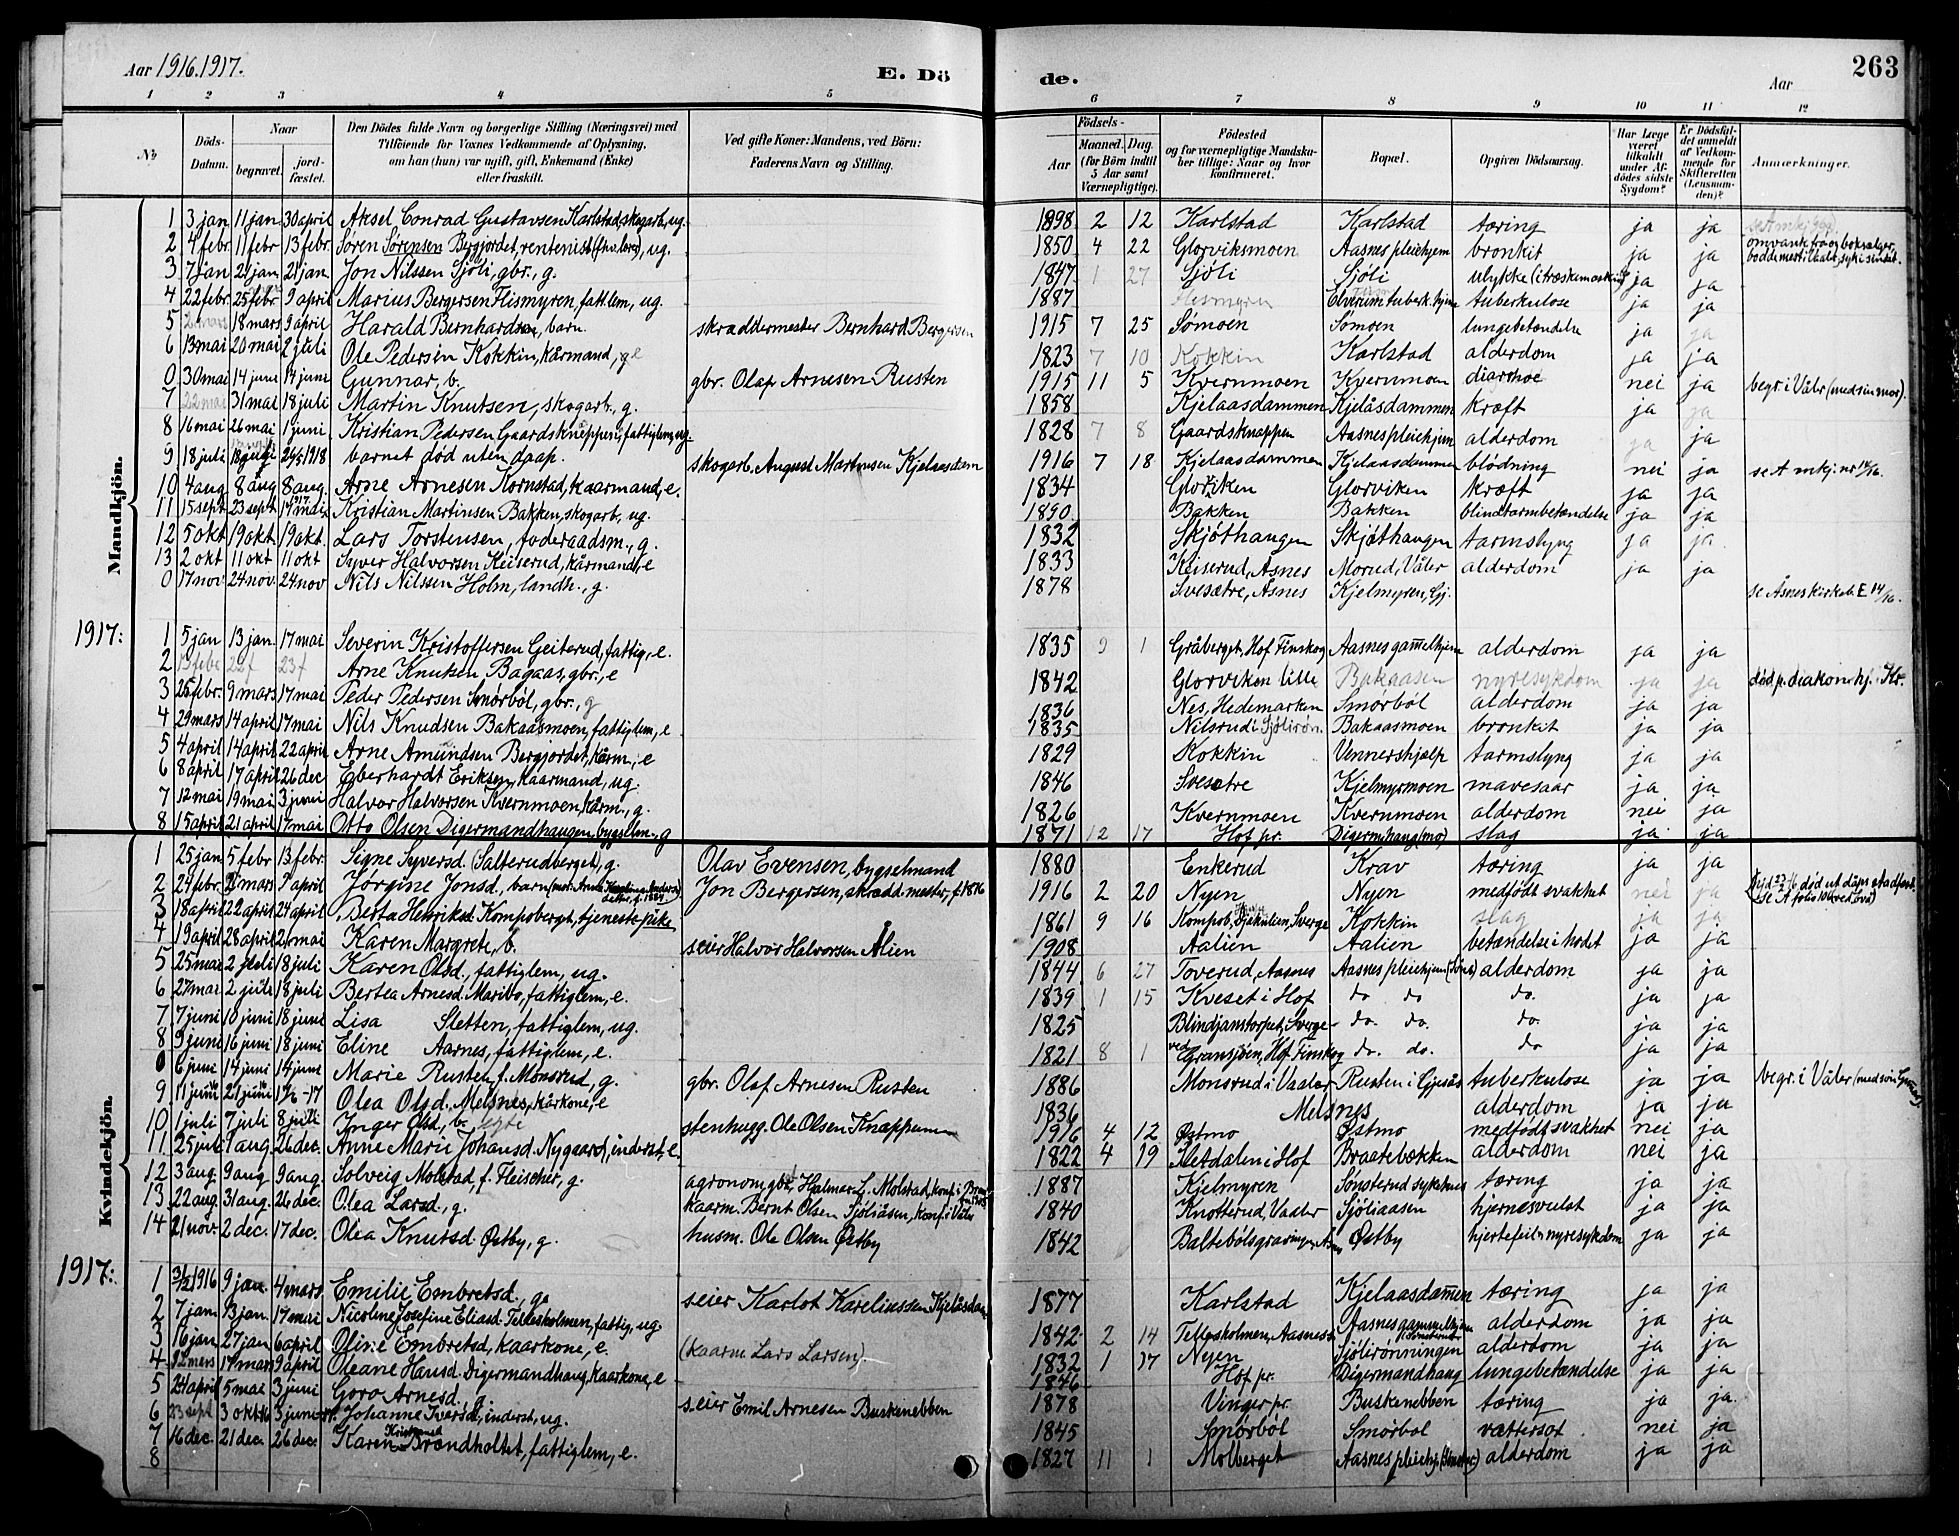 Aar 1916.1917.
E. Dö
de.
Aar
263
1 2 3 4 5 6 7 8 9 10 11 12
№
Döds-Datum.
Naar
begravet.
jord-fæstet.
Den Dödes fulde Navn og borgerlige Stilling (Næringsvei) med
Tilföiende for Voxnes Vedkommende af Oplysning,
om han (hun) var ugift, gift, Enkemand (Enke)
eller fraskilt.
Ved gifte Koner: Mandens, ved Börn:
Faderens Navn og Stilling.
Födsels-
Aar
Maaned. Dag.
(for Börn indtil
5 Aar samt
Værnepligtige).
Födested
og for værnepligtige Mandska-
ber tillige: Naar og hvor
konfirmeret.
Bopæl.
Opgiven Dödsaarsag.
Har Læge
været
tilkaldt
under Af-
dödes sidste
Sygdom?
Er Dödsfal-
det anmeldt
af Vedkom-
mende for
Skifteretten
(Lensman-
den)?
Anmærkninger.
Mandkjön.
1 3 jan 11 jan 30 april Aksel Conrad Gustavsen Karlstad, skogarb., ug. 1898 2 12 Karlstad Karlstad tæring ja ja
2 4 febr 11 febr 13 febr. Søren Sørensen Bergjordet, rentenist, ug. 1850 4 22 Glorviksmoen Aasnes pleiehjem bronkit ja ja omvank. fra og boksælger,
3 7 jan 21 jan 21 jan. Jon Nilssen Sjöli, gbr., g. 1847 1 27 Sjöli Sjöli ulykke (i træskemaskin) ja ja
4 22 febr 25 febr 9 april Marius Bergersen Flismyren, fattlem, ug. 1887 Flismyren Elverum tuberk.hjem tuberkulose ja ja
5 2 mars 18 mars 9 april Harald Bernhardsen, barn. skræddermester Bernhard Bergersen 1915 7 25 Sømoen Sømoen lungebetændelse ja ja
6 13 mai 20 mai 2 juli Ole Pedersen Kokkin, kårmand, ge 1823 7 10 Kokkin Karlstad alderdom ja ja
0 30 mai 14 juni 14 juni Gunnar, b. gbr. Olaf Arnesen Rusten 1915 11 5 Kvernmoen Kvernmoen diarrhoe nei ja begr. i Våler (med sin mor).
7 22 mai 31 mai 18 juli Martin Knutsen, skogarb., g. 1858 Kjelaasdammen Kjelåsdammen kræft ja ja
8 16 mai 26 mai 1 juni Kristian Pedersen Gaardsknappen, fattiglem, ug. 1828 7 8 Gaardsknappen Aasnes pleiehjem alderdom ja ja
9 18 juli 18 juli 1918 barnet död uten daap. skogarb. August Martinsen Kjelaasdam 1916 7 18 Kjelaasdammen Kjelaasdammen blödning nei ja se A mkj. nr 14/16.
10 4 aug 8 aug 8 aug. Arne Arnesen Kornstad, kaarmand, e. 1834 Glorviken Glorviken kræft ja ja
11 15 sept 23 sept 17 mai 1917 Kristian Martinsen Bakken, skogarb., ug. 1890 Bakken Bakken blindtarmbetændelse ja ja
12 5 okt 19 okt 19 okt. Lars Torstensen, foderaadsm., g. 1832 Skjøthaugen Skjøthaugen tarmslyng ja ja
13 2 okt 11 okt 11 okt Syver Halvorsen Keiserud, kårmand, e 1833 Keiserud, Åsnes Morud, Våler alderdom ja ja
0 17 nov 24 nov. 24 nov Nils Nilssen Holm, landh., g. 1878 Svesætre, Åsnes Kjelmyren, Gj. se Åsnes kirkeb. E 14/16.
1917:
1 5 jan 13 jan. 17 mai Severin Kristoffersen Geiterud, fattig, e. 1835 9 1 Gråberget, Hof Finskog Aasnes gam̄elhjem alderdom ja ja
2 15 febr 23 f 23 f Arne Knutsen Bagaas, gbr., e 1842 Glorviken lille Bakaasen nyresykdom ja ja död p. diakonhj. i Kr.
3 25 febr. 9 mars 17 mai Peder Pedersen Smörböl, gbr., g 1836 Nes, Hedemarken Smörböl alderdom ja ja
4 29 mars 14 april 17 mai Nils Knudsen Bakaasmoen, fattiglem, e 1835 Nilsrud i Sjölirøn. Bakaasmoen bronkit ja ja
5 4 april 14 april 22 april Arne Amundsen Bergjordet, kårm., e 1829 Kokkin Vennershjælp tarmslyng ja ja
6 8 april 17 april 26 dec Eberhardt Eriksen, kaarmand, ug. 1846 Svesætre Kjelmyrmoen mavesaar ja ja
7 12 mai 19 mai 3 juni Halvor Halvorsen Kvernmoen, kårm., g. 1826 Kvernmoen Kvernmoen alderdom nei ja
8 15 april 21 april 17 mai Otto Olsen Digermandhaugen, byggslm., g 1871 12 17 Hof pr. Digermhaug (mo) slag ja ja
Kvindekjön.
1 25 jan 5 febr 13 febr. Signe Syversd. (Satterudberget), g. Olav Evensen, bygselmand 1880 Enkerud Krav tæring ja ja
2 24 febr. 2 mars 9 april Jørgine Jonsd., barn Jon Bergersen, skrædd.mester, f. 1876 1916 2 20 Nyen Nyen medfödt svakhet nei ja
3 18 april 22 april 24 april Berta Henriksd Kompoberget, tjenestepike 1861 9 16 Kompob., Sverge Kokkin slag ja ja
4 19 april 28 april 21 mai Karen Margrete, b. seier Halvor Halvorsen Ålien 1908 Aalien Aalien betændelse i hodet ja ja
5 25 mai 2 juli 18 juli Karen Olsd., fattiglem, ug. 1844 6 27 Toverud, Aasnes Aasnes pleiehjem alderdom ja ja
6 27 mai 2 juli 18 juli Bertea Arnesd. Maribo, fattiglem, e. 1839 1 15 Kveset i Hof do do do. ja ja
7 7 juni 10 juni 18 juni Lisa Sletten, fattiglem, ug. 1825 Blindjanstorpet, Sverge do. do. do. ja ja
8 9 juni 16 juni 18 juni Eline Aarnes, fattiglem, e. 1821 8 1 ved Gransjöen, Hof Finskog do. do. do ja ja
0 6 juni 14 juni 14 juni Marie Rusten, f. Monsrud, g. gbr. Olaf Arnesen Rusten 1886 Monsrud i Vaaler Rusten i Gjesås tuberkulose ja ja begr. i Våler (med sön Gunnar).
9 11 juni 21 juni 17 Olea Olsd. Melsnes, kårkone, e 1836 Melsnes alderdom ja ja
10 1 juli 7 juli 8 juli Inger Olsd., b. stenhugg. Ole Olsen Knappumm 1916 4 12 Østmo Østmo medfödt svakhet nei ja
11 25 juli 1 aug. 26 dec. Anne Marie Johansd. Nygaard, inderst, e. 1822 4 19 Sletdalen i Hof Braatebækken alderdom nei ja
12 3 aug. 9 aug. 9 aug. Solveig Molstad, f. Fleischer, g. agronom, gbr., Hjalmar L. Molstad, konf. i 1887 Kjelmyren Sønsterud sykehus tæring ja ja
13 22 aug. 31 aug. 26 dec. Olea Larsd., g. kaarm. Bernt Olsen Sjöliåsen, konf. i Våler 1840 Knotterud, Vaaler Sjöliaasen hjernesvulst ja ja
14 21 nov. 2 dec. 17 dec. Olea Knutsd. Østby, g. husm. Ole Olsen Østby 1842 Baltebölsgravingen, Aasn Østby hjertefeil, nyresykdom ja ja
1917:
1 31/12 1916 9 jan. 4 mars Emilie Embretsd., g. seier Karlot Kareliussen Kjelåsdam 1877 Karlstad Kjelaasdam̄en tæring ja ja
2 7 jan 13 jan. 17 mai Nicoline Josefine Eliasd. Tellesholmen, fattig, ug. 1842 2 14 Tellesholmen, Aasnes Aasnes gammelhjem alderdom ja ja
3 16 jan 27 jan 6 april Oline Embretsd., kaarkone, e. (kaarm. Lars Larsen). 1832 1 17 Nyen Sjölirönningen alderdom ja ja
4 12 mars 17 mars 9 april Oleane Hansd. Digermandhaug, kaarkone, e 1846 Hof pr. Digermandhaug lungebetændelse ja ja
5 24 april 5 mai 3 juni Goro Arnesd. g. seier Emil Arnesen Buskenebben 1878 Vinger pr. Buskenebben tæring ja ja
6 23 sept 3 okt 3 juni Johanne Iversd., inderst, ug. 1845 Smørböl Smørbol vattersot nei ja
7 16 dec. 21 dec. 26 dec. Karen Kristiansd Brændholtet, fattiglem, e. 1827 11 1 Molberget Aasnes pleiehj. alderdom ja ja
8